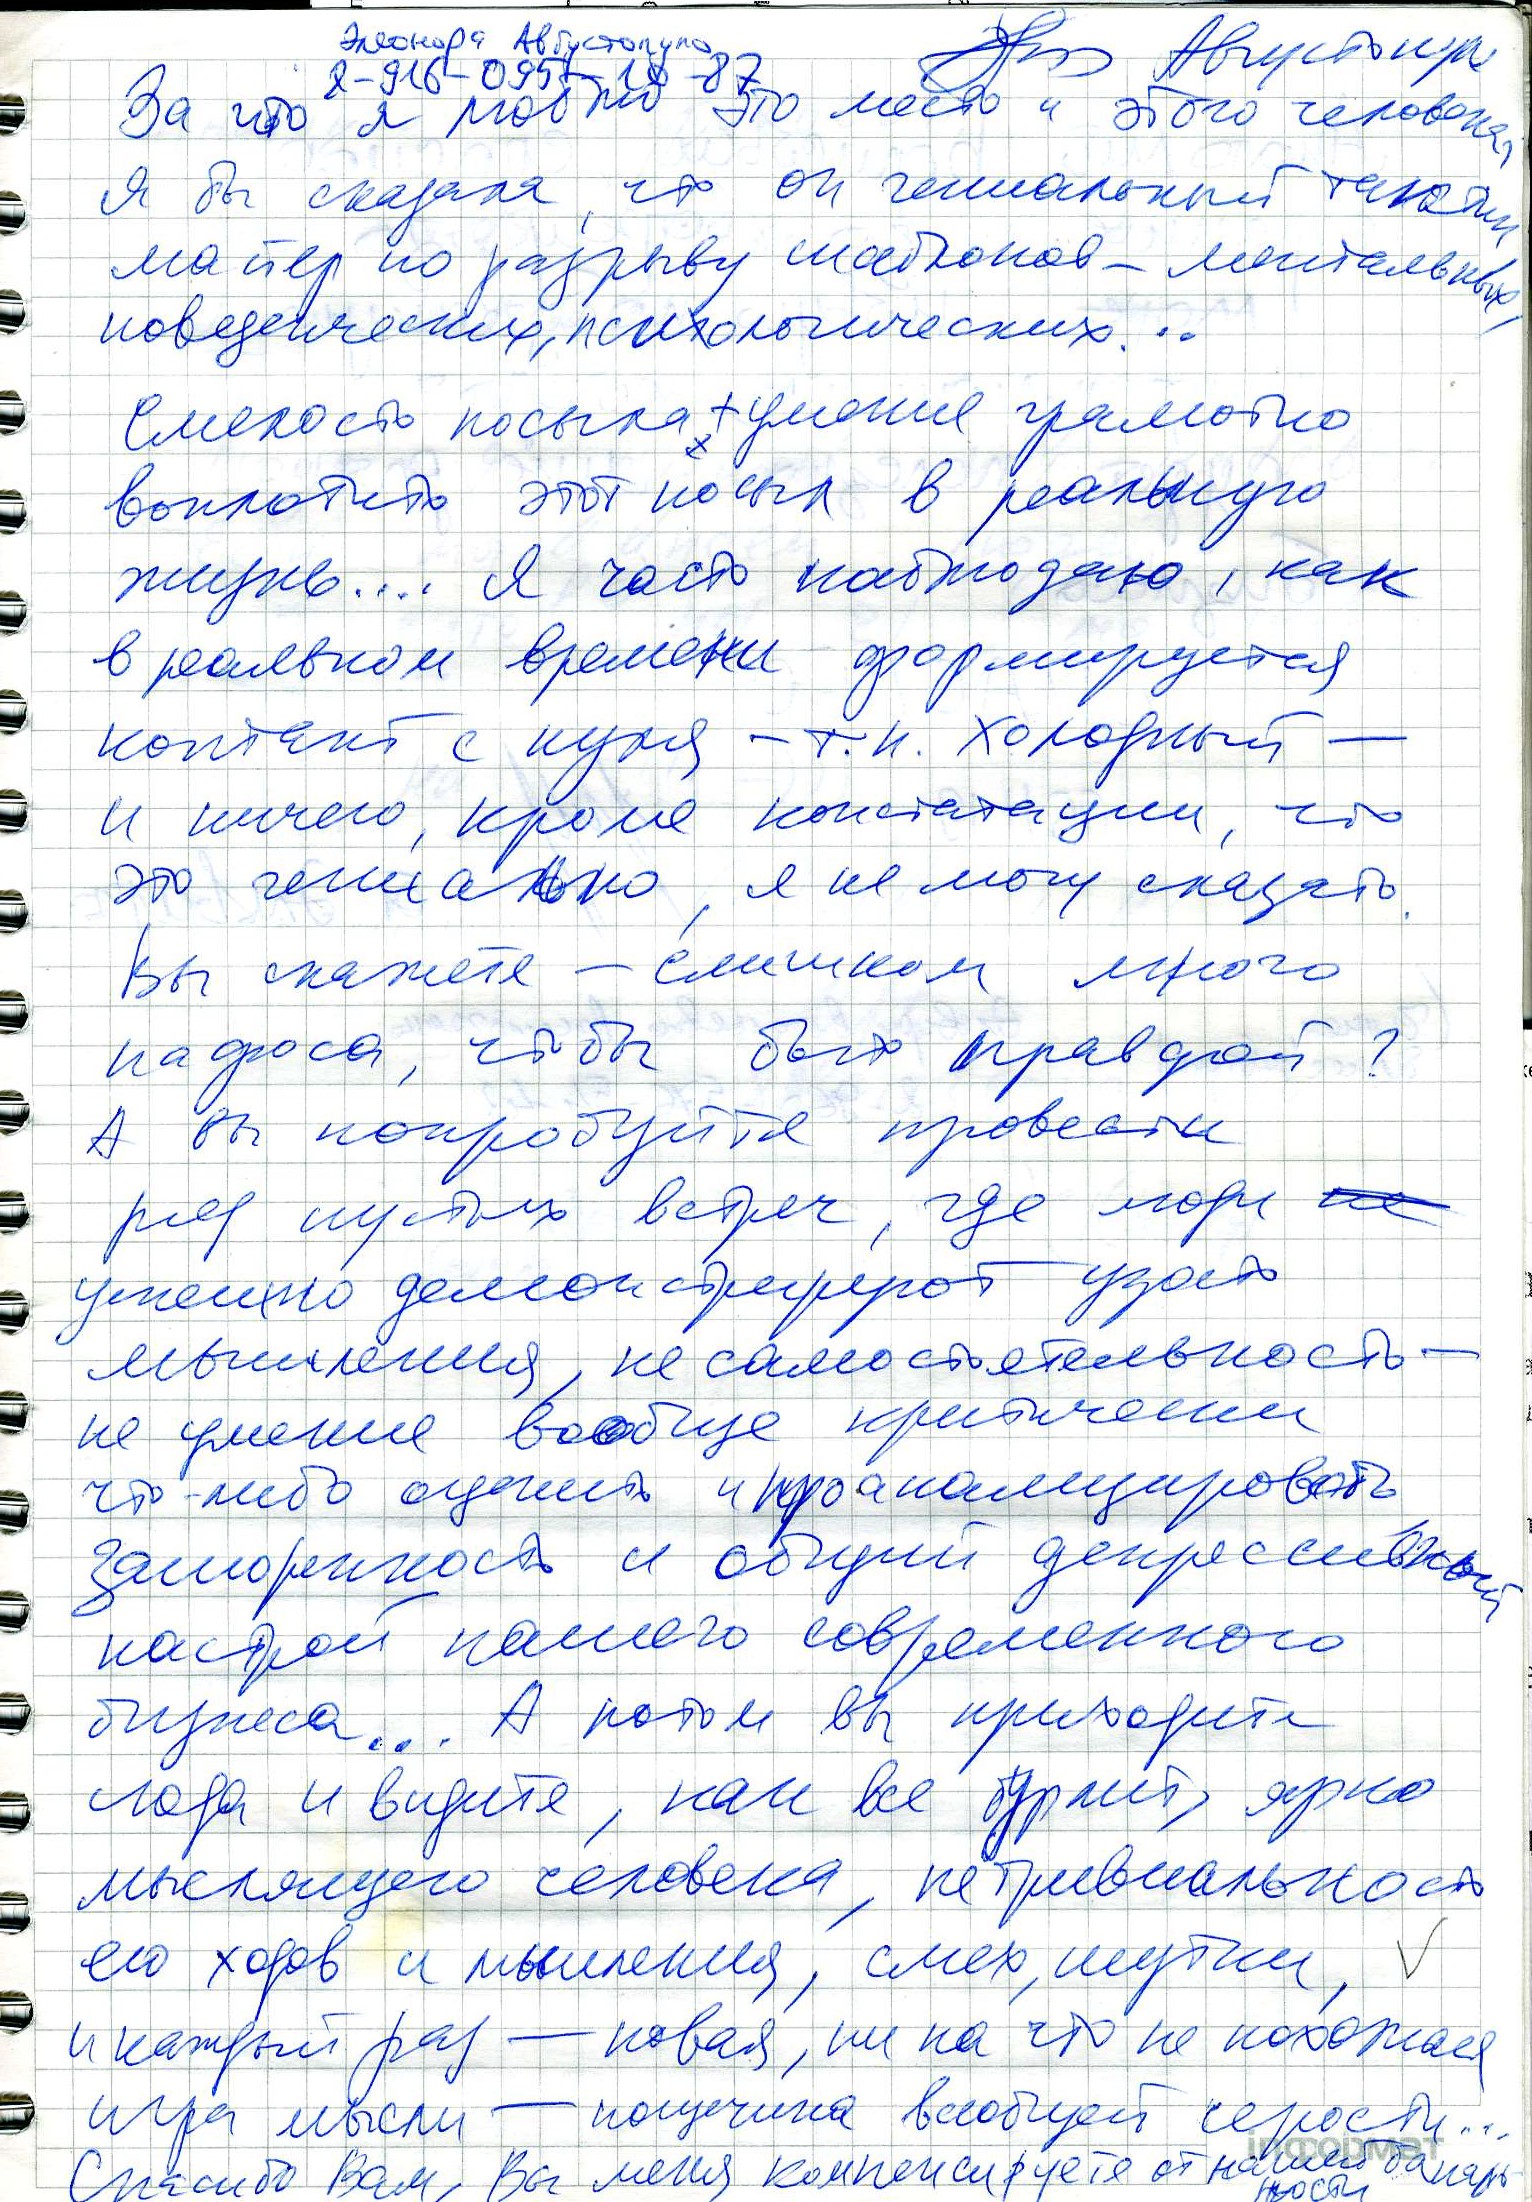 Элеонора Августопуло
8-916-095-10-87
Августопуло
За что я люблю это место и этого человека?
Я бы сказала, что он гениальный
майер по разрыву шаблонов – ментальных,
поведенческих, психологических...
Смелость посыла + умение грамотно
воплотить этот посыл в реальную
жизнь.... Я часто наблюдаю, как
в реальном времени формируется
контакт с нуля – т.н. холодный –
и ничего, кроме констатации, что
это гениально, я не могу сказать.
Вы скажете – слишком много
пафоса, чтобы быть правдой?
А вы попробуйте провести
ряд пустых встреч, где люди не
умело демонстрируют узость
мышления, несамостоятельность –
не умение вообще критически
что-либо оценить и проанализировать
зашоренность и общий депрессивный
настрой нашего современного
бизнеса... А потом вы приходите
сюда и видите, как все бурлит, ярко
мыслящего человека, нетривиальность
его ходов и мышления, смех, шутки,
и каждый раз – новая, ни на что не похожая
игра мысли – пощечина всеобщей серости...
Спасибо Вам, Вы меня компенсируете от нашей баналь-
ности
информат